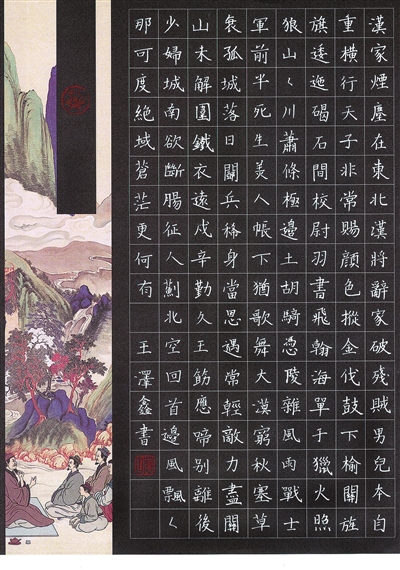 漢家煙塵在東北漢將辭家破殘賊男兒本自
重橫行天子非常賜顏色摐金伐鼓下榆關旌
旗逶迤碣石間校尉羽書飛翰海單于獵火照
狼山々川蕭條極邊土胡騎憑陵雜風雨戰士
軍前半死生美人帳下猶歌舞大漠窮秋塞草
衰孤城落日鬭兵稀身當思遇常輕敵力盡關
山未解圍鐵衣遠戍辛勤久玉筯應啼別離後
少婦城南欲斷腸征人薊北空回首邊風飄々
那可度絕域蒼茫更何有 王澤鑫書